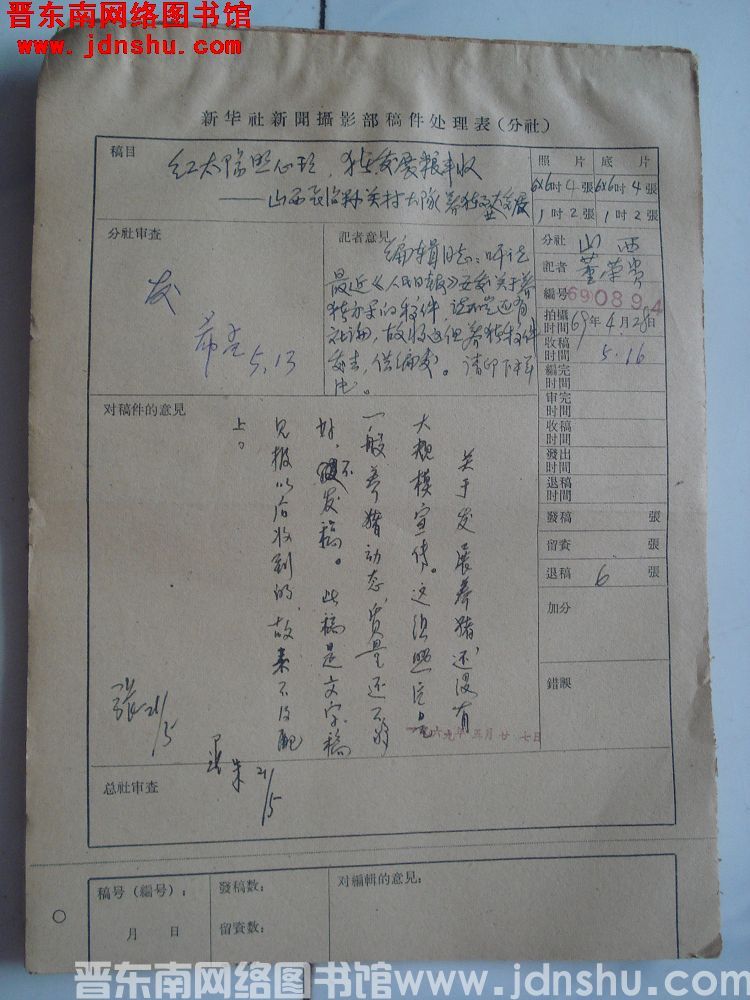 晋东南网络图书馆
www.jdnshu.com
新华社新聞攝影部稿件处理表(分社)
稿目
红太阳照心坎，猪发展粮丰收
——山西长治孙关村大隊养猪
照片 底片
6x6吋4張 6x6吋4張
1吋2張 1吋2張
分社审查
发
5.13
記者意見
编辑同志：听说
最近《人民日报》要发关于养
猪方案的稿件，还有
社论，故将这组养猪稿件
发去，供编发。请印下样
分社 山西
記者 董荣贵
編号 690894
拍攝時間 69年4月28日
收稿時間 5.16
編完時間
审完時間
收稿時間
發出時間
退稿時間
發稿 張
留資 張
退稿 6 張
加分
錯誤
对稿件的意見
关于发展养猪还没有
大规模宣传。这组照片是
一般养猪动态，质量还不够
好，不发稿。此稿是文字稿
见报以后收到的，故来不及配
上。
張 21/5
21/5
一九六九年五月廿七日
总社审查
稿号(編号)：
月 日
發稿数：
留資数：
对編輯的意見：
晋东南网络图书馆www.jdnshu.com